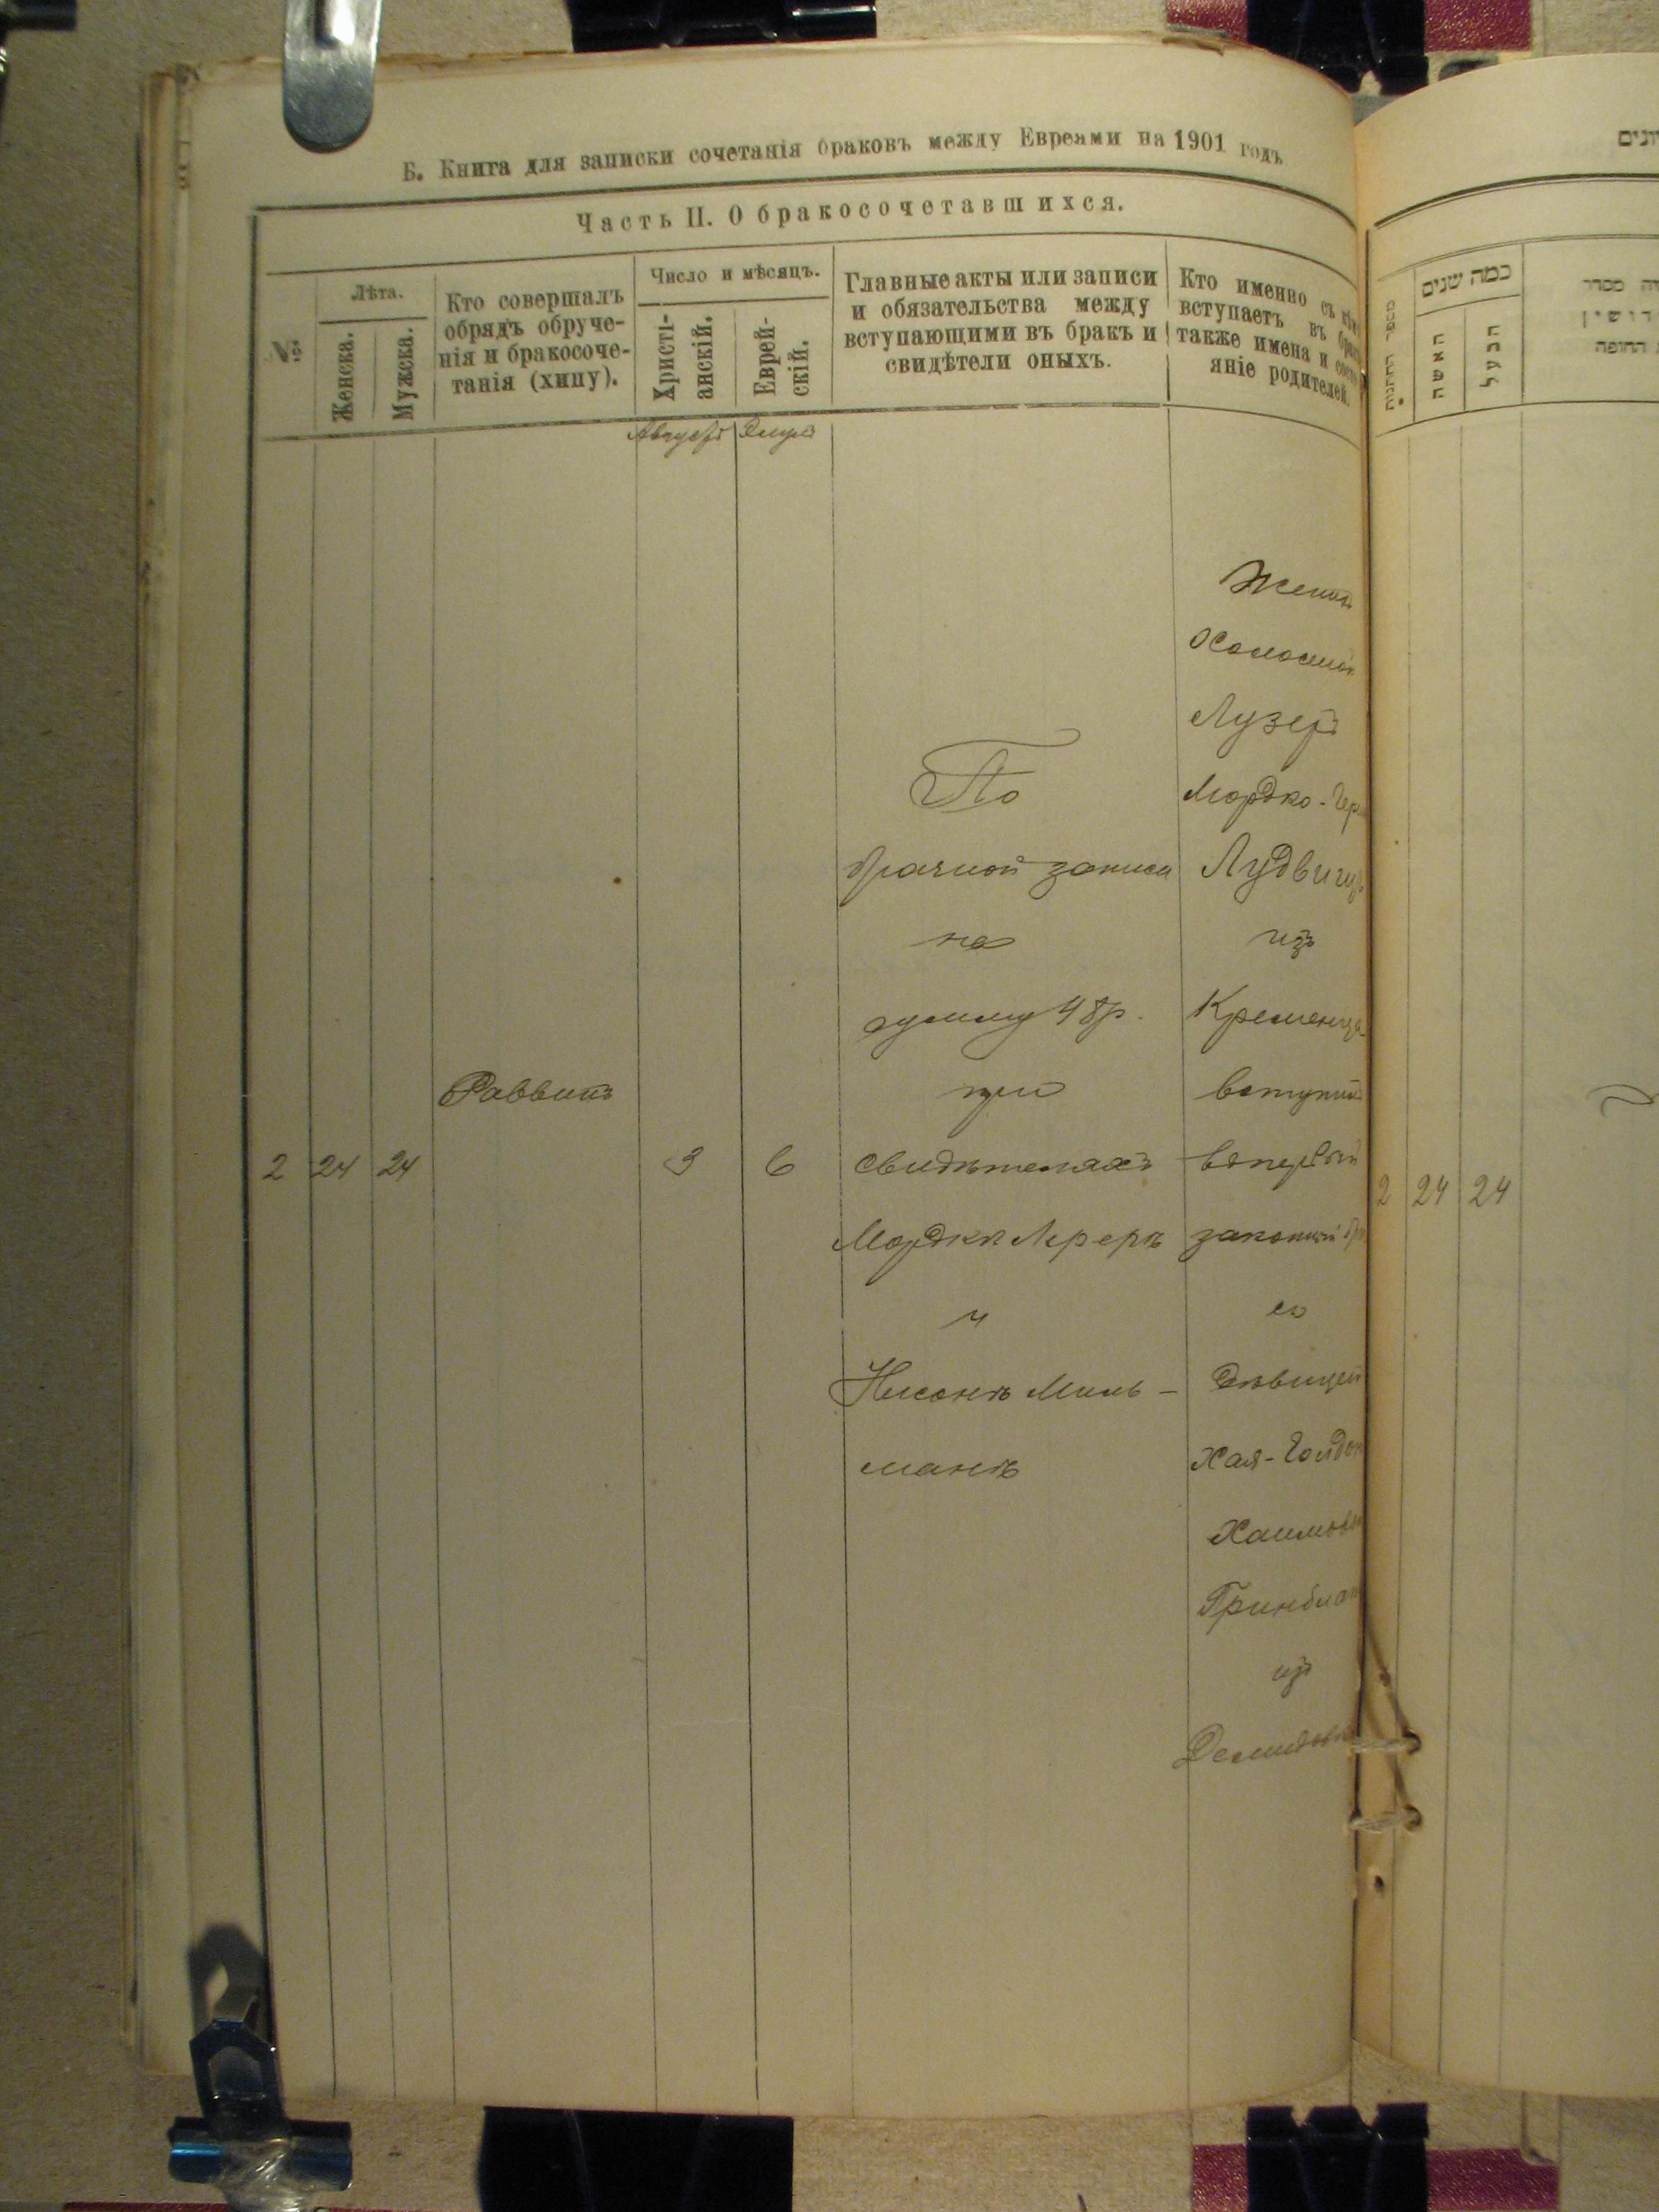 Б. Книга для записки сочетанія браковъ между Евреями на 1901 годъ
Часть II. О бракосочетавшихся.
№
Лѣта.
Женска.
Мужска.
Кто совершалъ
обрядъ обруче-
нія и бракосоче-
танія (хипу).
Число и мѣсяцъ.
Христі-
анскій.
Еврей-
скій.
Главные акты или записи
и обязательства между
вступающими въ бракъ и
свидѣтели оныхъ.
Кто именно съ
вступаетъ въ
также имена и
яніе родителей.
Августъ
Элулъ
2
24
24
Раввинъ
3
6
По
брачной записи
на
сумму 48р.
при
свидѣтеляхъ
Мордко Лереръ
и
Нисонъ Миль-
манъ
Женихъ
Холостой
Лузеръ
Мордко-
Лудвигъ
изъ
Кременца
вступилъ
въ первый
законный
съ
дѣвицей
Хая-
Хаимов
Гринбла
изъ
Демидов
כמה שנים
האשה
הבעל
2
24
24